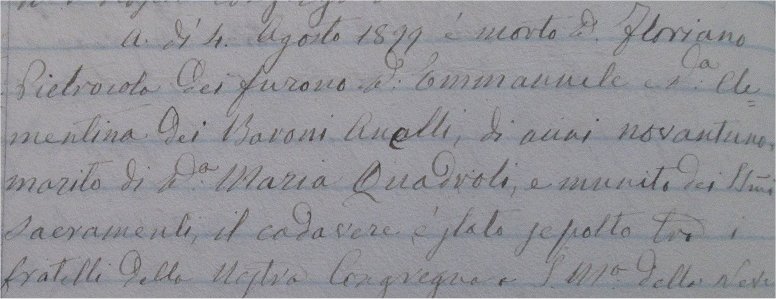 A. dì 4. Agosto 1899 è morto D. Floriano
Pietrocola dei furono D. Emmanuele e D.a Cle=
mentina dei Baroni Anelli, di anni novantuno,
marito di D.a Maria Quadroli, e munito dei SSmi
Sacramenti, il cadavere è stato sepolto tra i
fratelli della Nostra Congrega S. Ma. della Neve